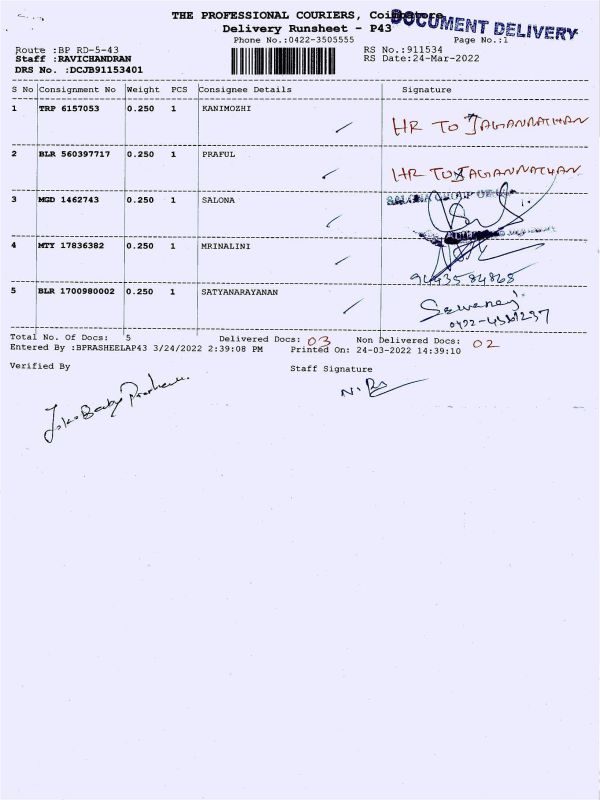 THE PROFESSIONAL COURIERS, Coimbatore
DOCUMENT DELIVERY
Delivery Runsheet - P43
Phone No.:0422-3505555
Page No.:1
Route :BP RD-5-43
RS No.:911534
Staff :RAVICHANDRAN
RS Date:24-Mar-2022
DRS No. :DCJB91153401
S No Consignment No Weight PCS Consignee Details Signature
1 TRP 6157053 0.250 1 KANIMOZHI
HR TO JAGANNATHAN
2 BLR 560397717 0.250 1 PRAFUL
HR TO JAGANNATHAN
3 MGD 1462743 0.250 1 SALONA
4 MTY 17836382 0.250 1 MRINALINI
5 BLR 1700980002 0.250 1 SATYANARAYANAN
Total No. Of Docs: 5 Delivered Docs: 03 Non Delivered Docs: 02
Entered By :BPRASHEELAP43 3/24/2022 2:39:08 PM Printed On: 24-03-2022 14:39:10
Verified By
Staff Signature